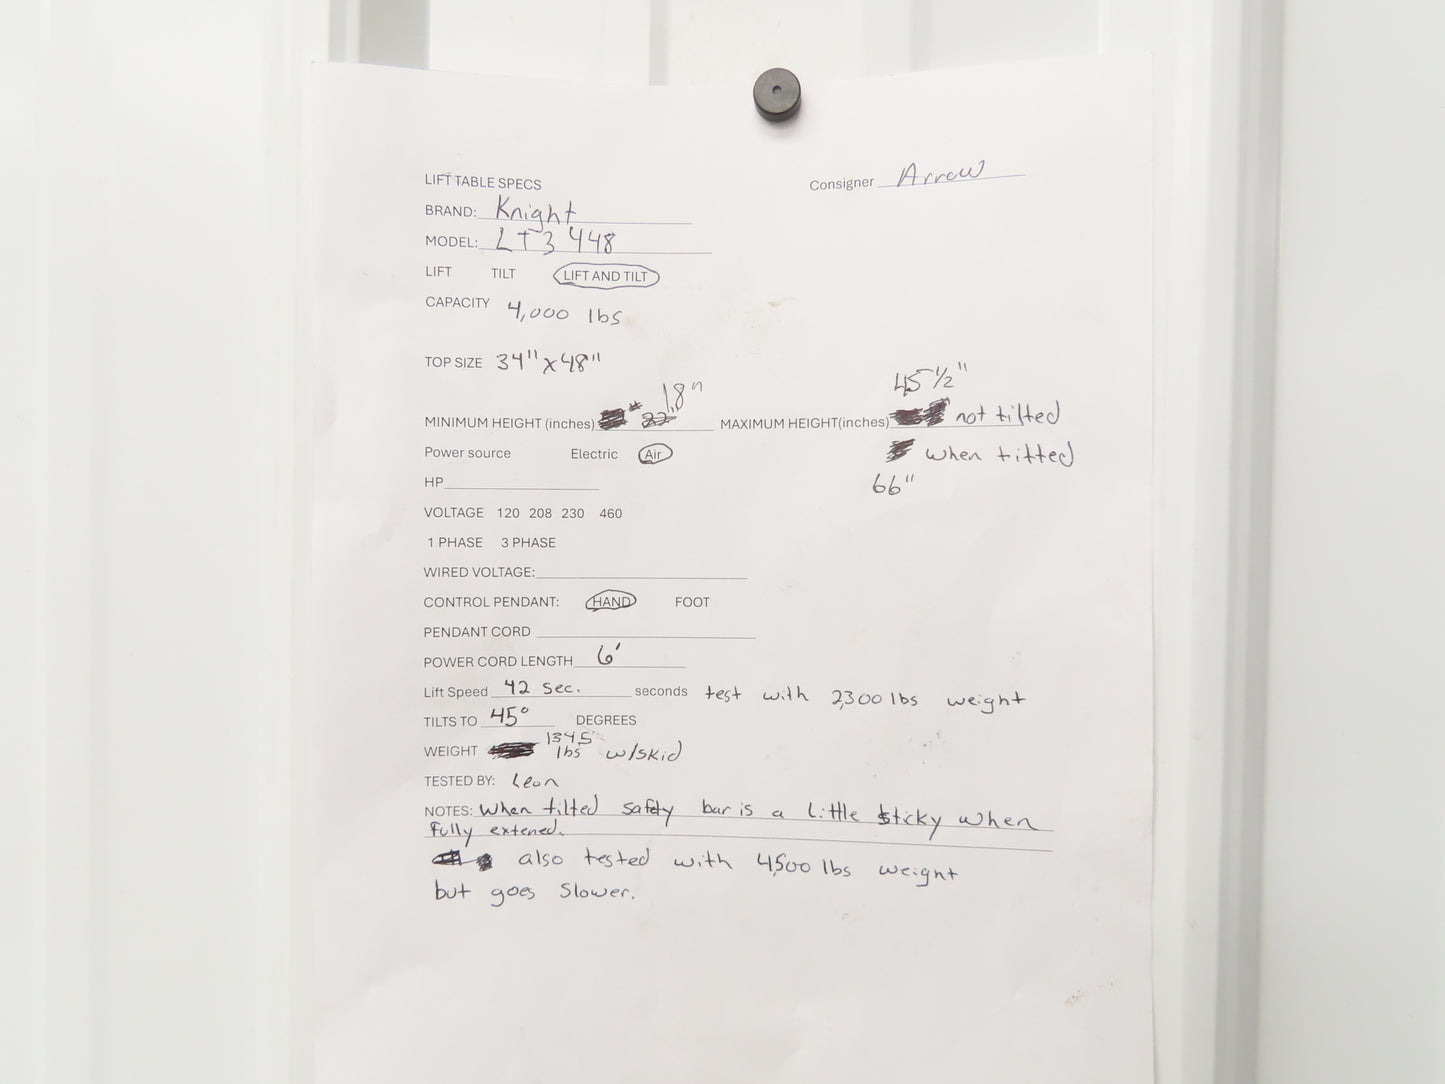 LIFT TABLE SPECS
Consigner Arrow
BRAND: Knight
MODEL: LT3448
LIFT TILT LIFT AND TILT
CAPACITY 4,000 lbs
TOP SIZE 34" x 48"
45 1/2"
MINIMUM HEIGHT (inches) 18" MAXIMUM HEIGHT(inches) not tilted
Power source Electric Air
when titted
66"
HP
VOLTAGE 120 208 230 460
1 PHASE 3 PHASE
WIRED VOLTAGE:
CONTROL PENDANT: HAND FOOT
PENDANT CORD
POWER CORD LENGTH 6'
Lift Speed 42 Sec. seconds test with 2,300 lbs weight
TILTS TO 45° DEGREES
WEIGHT 1345 lbs w/skid
TESTED BY: Leon
NOTES: When tilted safety bar is a little sticky when
fully extened.
also tested with 4,500 lbs weight
but goes slower.